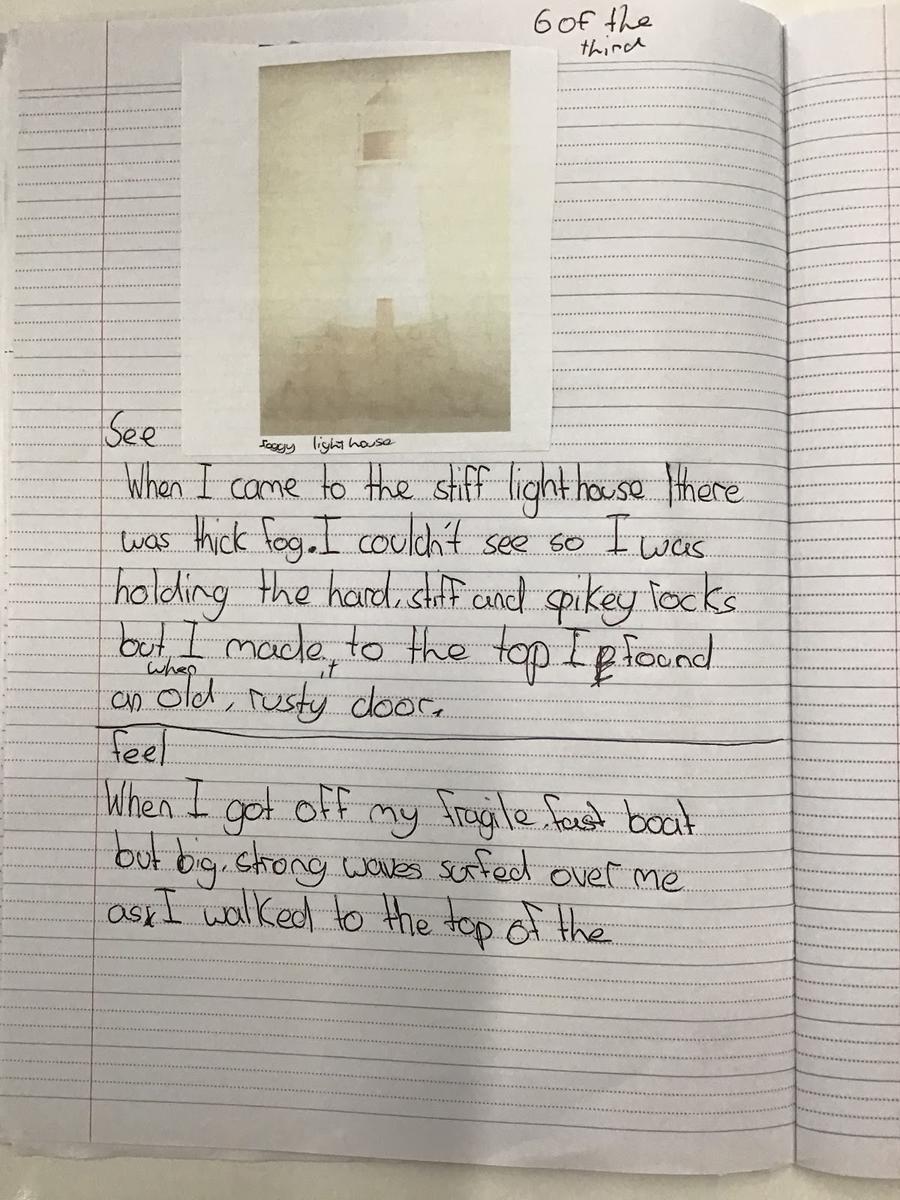 6 of the
third
foggy lighthouse
See
When I came to the stiff lighthouse there
was thick fog. I couldn't see so I was
holding the hard, stiff and spikey rocks
but when I made it to the top I found
an old, rusty door.
feel
When I got off my fragile, fast boat
but big, strong waves surfed over me
as I walked to the top of the